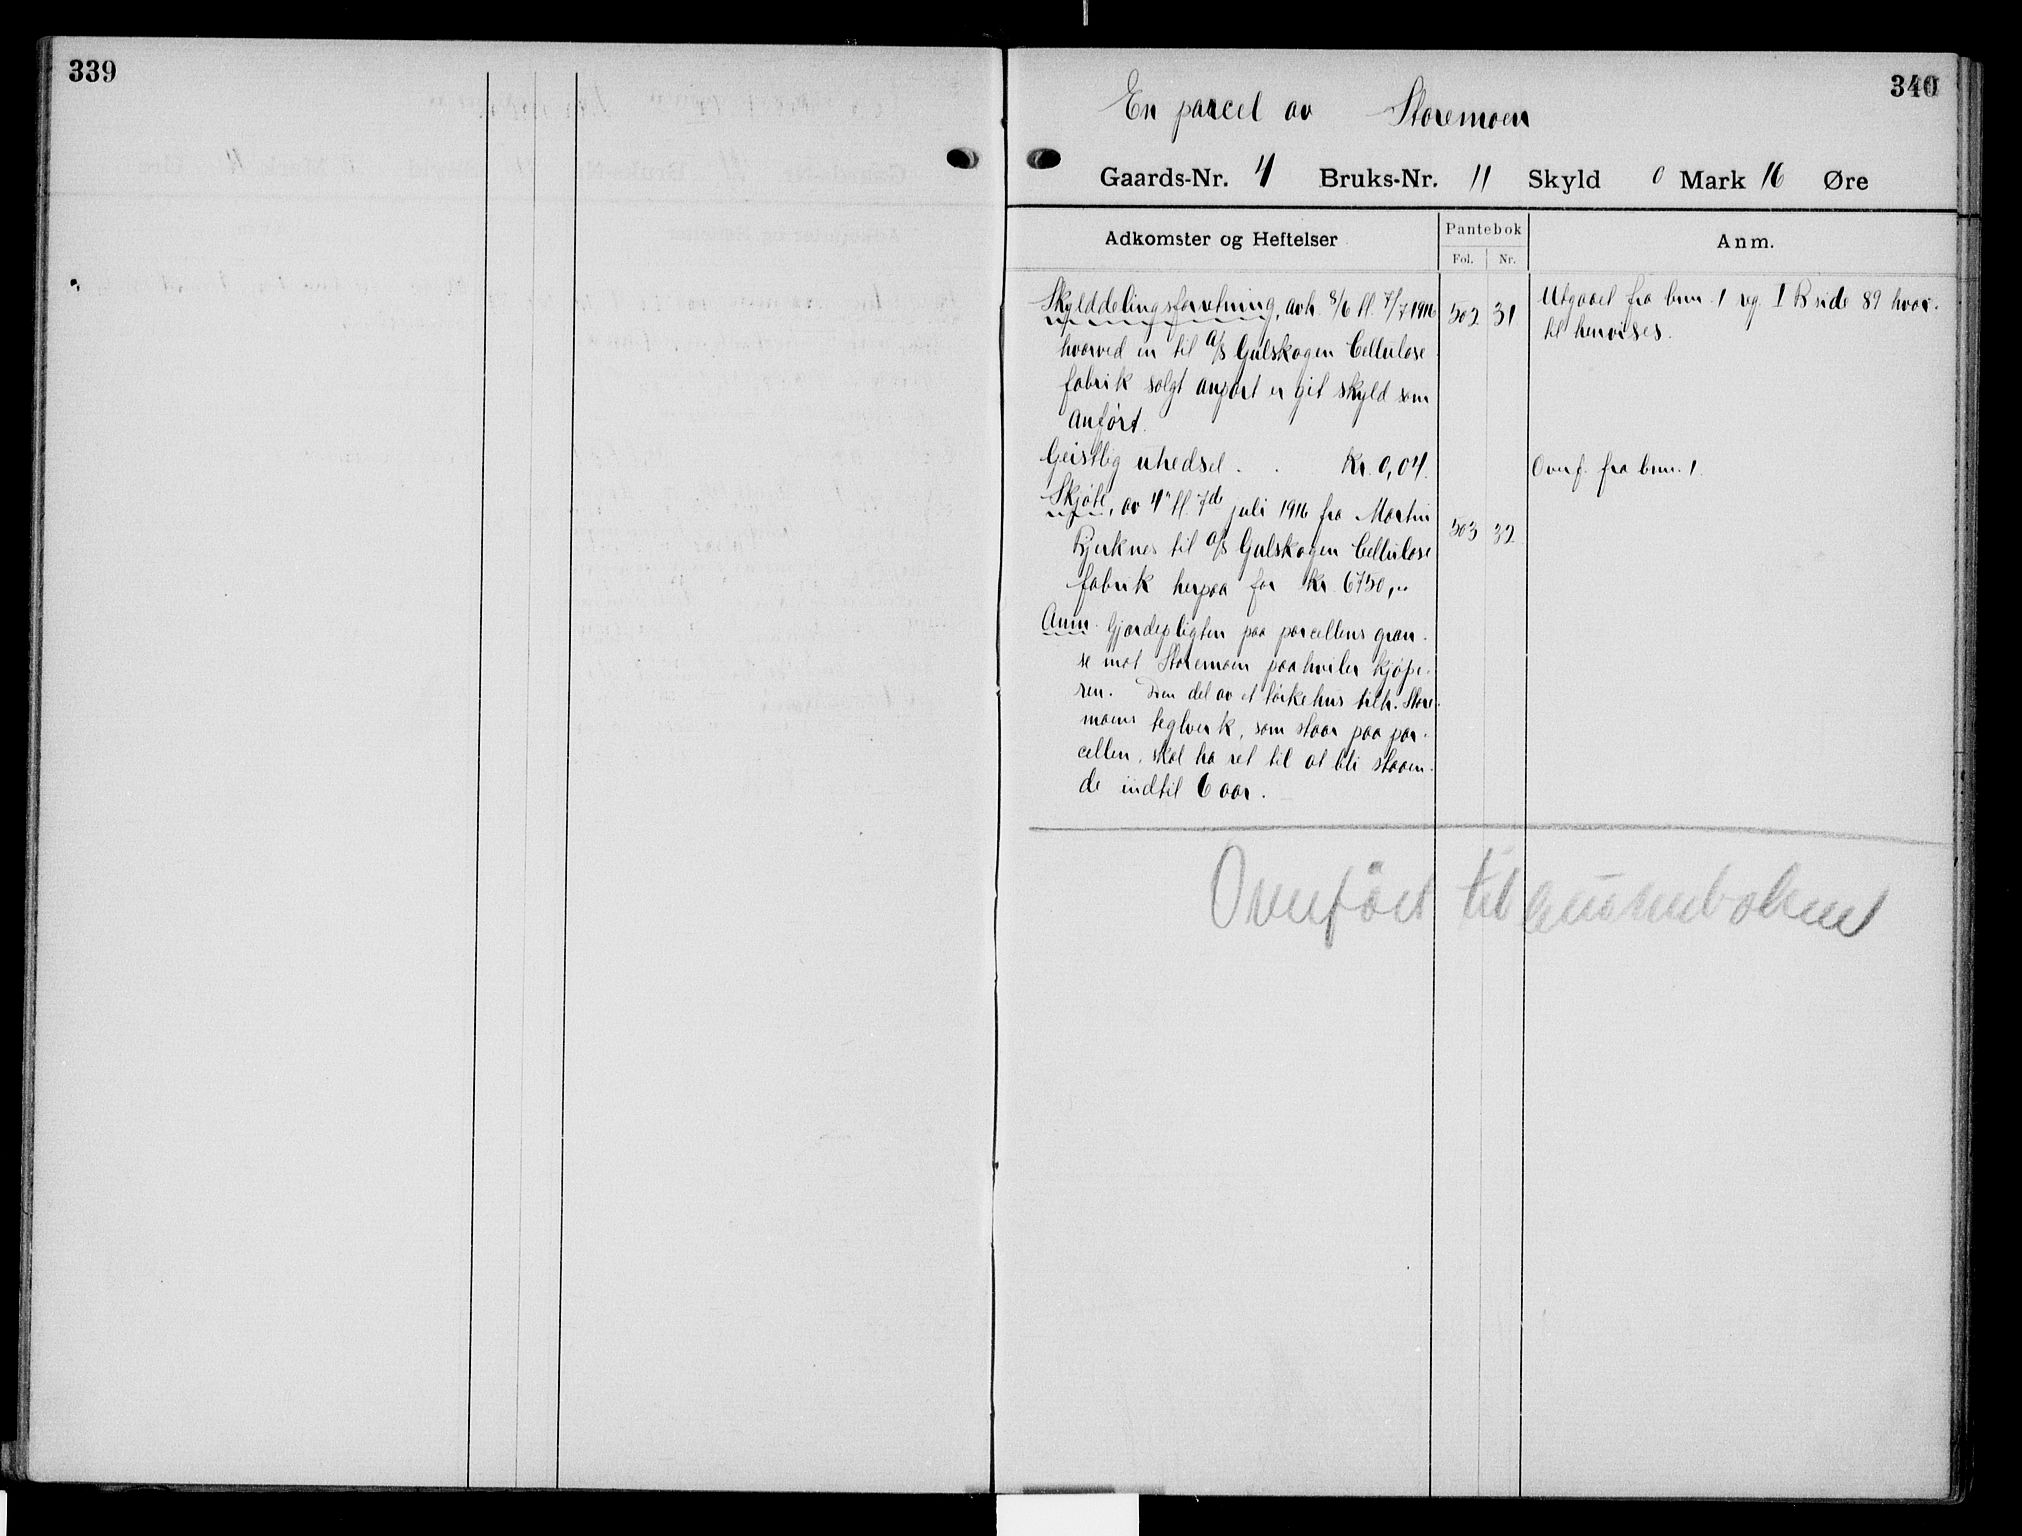 339
340
En parcel av Storemoen
Gaards-Nr. 4 Bruks-Nr. 11 Skyld 0 Mark 16 Øre
Adkomster og Heftelser
Pantebok
Fol. Nr.
Anm.
Skylddelingsforretning, avh. 8/6 tl. 7/7 1916
hvorved en til A/S Gulskogen Cellulose
fabrik solgt anpart er git skyld som
anført.
502 31
Utgaaet fra brnr. 1 reg. I B side 89 hvor-
til henvises.
Geistlig utredsel . . Kr. 0,04.
Overf. fra brnr. 1.
Skjøte, av 4" tl. 7de juli 1916 fra Martin
Bjerknes til A/S Gulskogen Cellulose
fabrik herpaa for Kr. 6750,"
503 32
Anm. Gjærdepligten paa parcellens græn-
se mot Storemoen paahviler kjøpe-
ren. Den del av et tørkehus tilh. Store-
moens teglverk, som staar paa par-
cellen, skal ha ret til at bli staaen-
de indtil 6 aar.
Overført til